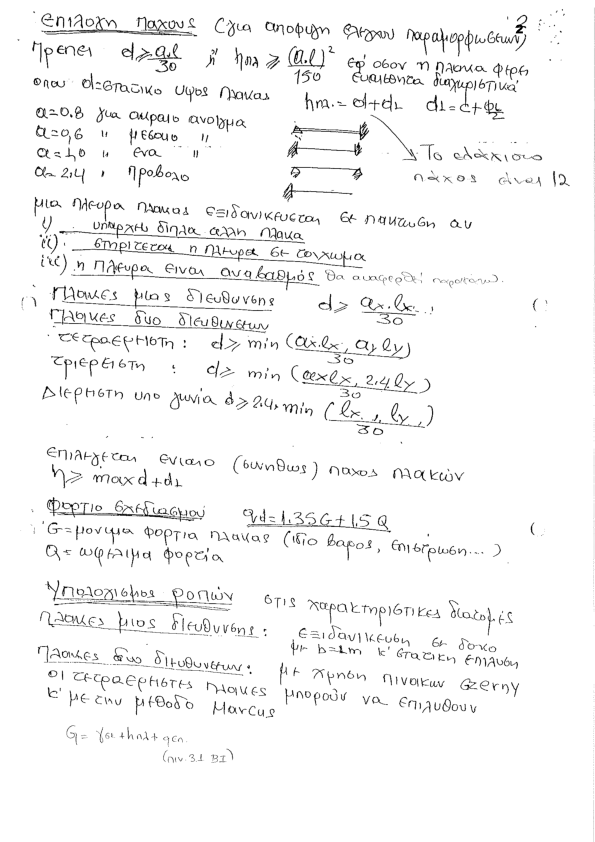 2
επιλογη παχους (για αποφυγη ελεγχου παραμορφωσεων)
Πρεπει d ≥ a.l/30 ή hπλ ≥ (a.l)²/150 εφ' οσον η πλακα φερει ευαισθητα διαχωριστικά
οπου d=στατικο υψος πλακας hπλ.=d+d1 d1=c+Φl/2
a=0.8 για ακραιο ανοιγμα
a=0,6 " μεσαιο "
a=1,0 " ενα "
a=2.4 , προβολο
Το ελάχιστο
πάχος είναι 12
μια πλευρα πλακας εξιδανικευεται σε πακτωση αν
i) υπαρχει διπλα αλλη πλακα
ii) στηριζεται η πλευρα σε τοιχωμα
iii) η πλευρα ειναι αναβαθμος θα αναφερθεί παρακατω.
Πλακες μιας διευθυνσης d ≥ ax.lx/30
Πλακες δυο διευθυνσεων
τετραερειστη : d ≥ min (ax.lx, ay ly)/30
τριερειστη : d ≥ min (axlx, 2.4ly)/30
Διεριστη υπο γωνία d ≥ 2.4. min (lx, ly)/30
επιλεγεται ενιαιο (συνηθως) παχος πλακών
h ≥ max d + d1
Φορτιο σχεδιασμου qd=1.35G+1.5Q
G=μονιμα φορτια πλακας (ιδιο βαρος, επιστρωση...)
Q= ωφελιμα φορτία
Υπολογισμος ροπών στις χαρακτηριστικες διατομές
Πλακες μιας διευθυνσης: εξιδανικευση σε δοκο
με b=1m κ' στατικη επιλυση
Πλακες δυο διευθυνσεων: με χρηση πινακων Czerny
οι τετραερειστες πλακες μπορούν να επιλυθουν
κ' με την μεθοδο Marcus
G= γσκ*hπλ+gεπ.
(πιν. 31 BI)